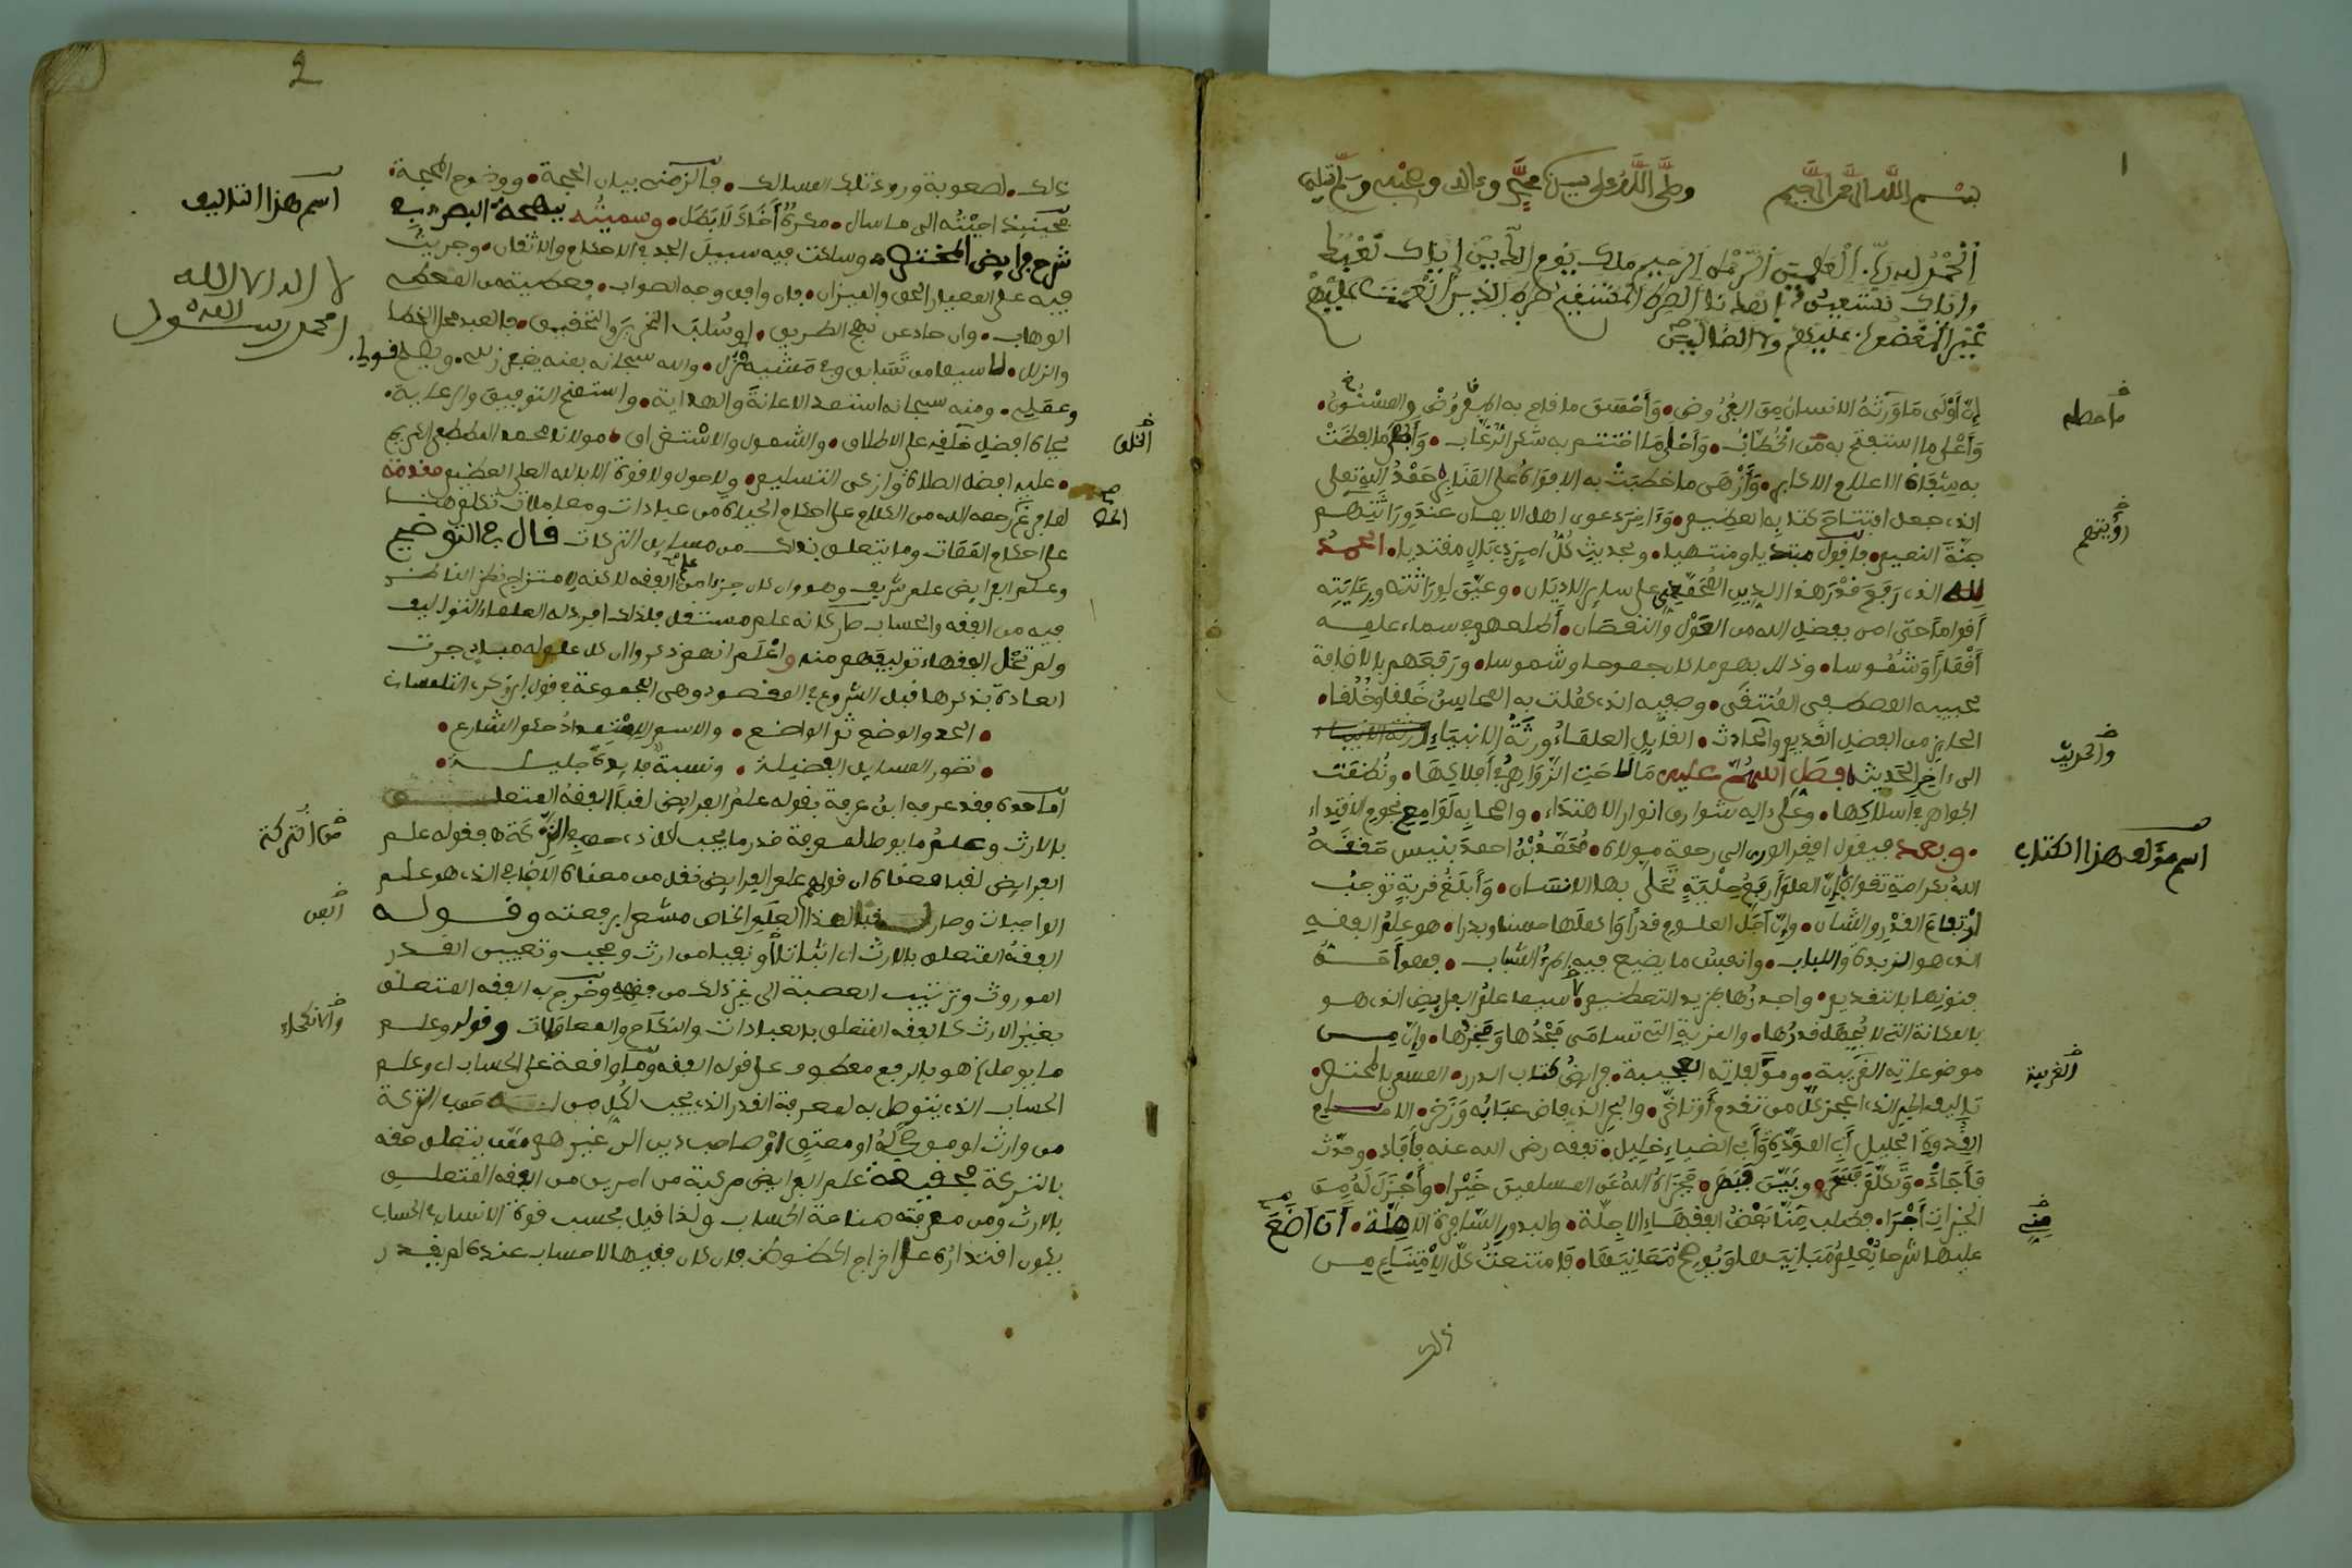 بسم الله الرحمن الرحيم وصلى الله على سيدنا محمد وعلى اله وصحبه وسلم تسليما
الحمد لله رب العلمين الرحمن الرحيم ملك يوم الدين إياك نعبد
وإياك نستعين اهدنا الصراط المستقيم صراط الذين أنعمت عليهم
غير المغضوب عليهم ولا الضالين
إن أولى ما ورثه الانسان من العروض وأحسن ما قام به المفروض والمسنون
وأعلى ما استفتح به من الخطاب وأحلى ما اختتم به شكر
به الاعلام الاكابر به الافواه على
الذي جعل افتتاح كتابه العظيم وءاخر دعوى اهل الايمان عند وراثتهم
جنة النعيم فأقول مبتديا ومنتهيا وبحديث كل امر ذي بال مقتديا الحمد
لله الذي رفع قدر هذا الدين على ساير الاديان وعين لوراثته ورعايته
أقواما حتى امن بفضل الله من العول والنقصان أطلعهم في سماء علمه
أقمارا وشموسا وذلل بهم ما كان جموحا وشموسا ورفعهم بالاضافة
لحبيبه المصطفى المنتقى وصفيه الذي كملت به المحاسن خلقا وخلقا
الحايز من الفضل القديم والحادث القايل العلماء ورثة الانبياء
الى ءاخر الحديث فصل اللهم عليه ما لاحت الزواهر في أفلاكها ونظمت
الجواهر في أسلاكها وعلى ءاله شوارق انوار الاهتداء واصحابه لوامع نجوم الاقتداء
وبعد فيقول افقر الورى الى رحمة مولاه محمد بن احمد بنيس
الله بكرامة تقواه إن العلم أرفع حلية تحلى بها الانسان وأبلغ قربة توجب
ارتفاع القدر والشان وإن أجل العلوم قدرا وأكملها حسنا وبدرا هو علم الفقه
الذي هو الزبدة واللباب وانفس ما يضيع فيه الشباب
فنونها بالتقديم واجدرها بمزيد التعظيم لا سيما علم الفرايض الذي هو
بالمكانة التي لا يجهل قدرها والمزية التي تسامى مجدها وفخرها وإن من
موضوعاته الغريبة ومؤلفاته العجيبة فرايض كتاب الدرر المسمى بالمختصر
تاليف الحبر الذي اعجز كل من تقدم أو تأخر والبحر الذي فاض عبابه وزخر الامام
القدوة الجليل أبي المودة وأبي الضياء خليل تفقه رضي الله عنه فأفاد وحدث
فأجاد فجزاه الله عن المسلمين خيرا وأجزل له من
الخيرات أجرا فطلب منا بعض الفقهاء الاجلة والبدور السافرة الاهلة أن أضع
عليها شرحا يعلم مبانيها ويوضح معانيها فامتنعت كل الامتناع من
ذلك
ما حظي
رؤيتهم
والحديث
اسم مؤلف هذا الكتاب
الغريبة
مني
2
ذلك لصعوبة ورود تلك المسالك فألزمني بيان الحجة ووضوح المحجة
فحينئذ اجبته الى ما سال مكره أخاك لا بطل وسميته بهجة البصر في
شرح فرايض المختصر وسلكت فيه سبيل الجد في الاحكام والاتقان وجريت
فيه على المعيار الحق والميزان فان وافق وجه الصواب فعطية من المعطي
الوهاب وان حاد عن نهج الطريق او سلب التحرير والتحقيق فالعبد محل الخطا
والزلل لا سيما من والله سبحانه بمنه يغفر زلله ويصلح قوله
وعمله ومنه سبحانه استمد الاعانة والهداية واستمنح التوفيق والرعاية
بجاه افضل خلقه على الاطلاق والشمول والاستغراق مولانا محمد المصطفى الكريم
عليه افضل الصلاة وازكى التسليم ولا حول ولا قوة الا بالله العلي العظيم مقدمة
لما فرغ رحمه الله من الكلام على احكام الحياة من عبادات ومعاملات تكلم هنا
على احكام الممات وما يتعلق بذلك من مسايل التركات قال في التوضيح
وعلم الفرايض علم شريف وهو وان كان جزءا من علم الفقه لاكنه لامتزاج نظر الناظر
فيه من الفقه والحساب صار كانه علم مستقل فلذلك افرد له العلماء التواليف
ولم تخل الفقهاء تواليفهم منه واعلم انهم ذكروا ان كل علم له مباد جرت
العادة بذكرها قبل الشروع في المقصود وهي المجموعة في قول ابن زكري التلمساني
الحد والوضع ثم الواضع والاسم الاستمداد حكم الشارع
تصور المسايل الفضيلة ونسبة فايدة جليلة
أما حده فقد عرفه ابن عرفة بقوله علم الفرايض لقبا الفقه المتعلق
بالارث وعلم ما يوصل لمعرفة قدر ما يجب لكل ذي حق في التركة ه فقوله علم
الفرايض لقبا معناه ان قولهم علم الفرايض نقل من معناه الاضافي الذي هو علم
الواجبات وصار لقبا لهذا العلم الخاص مشعرا برفعته وقوله
الفقه المتعلق بالارث اي اثباتا أو نفيا من ارث وحجب وتعيين القدر
الموروث وترتيب العصبة الى غير ذلك من فقهه وخرج به الفقه المتعلق
بغير الارث كالفقه المتعلق بالعبادات والنكاح والمعاملات وقوله وعلم
ما يوصل هو بالرفع معطوف على قوله الفقه وما واقعة على الحساب اي وعلم
الحساب الذي يتوصل به لمعرفة القدر الذي يجب لكل من له حق في التركة
من وارث او موصى له او معتق او صاحب دين الى غيرهم ممن يتعلق حقه
بالتركة فحقيقة علم الفرايض مركبة من امرين من الفقه المتعلق
بالارث ومن معرفة صناعة الحساب ولذا قيل بحسب قوة الانسان في الحساب
يكون اقتداره على اخراج الحظوظ فان كان فقيها لا حساب عنده لم يقدر
اسم هذا التاليف
لا اله الا الله
محمد رسول الله
الخلق
من التركة
الفن
والانكحة